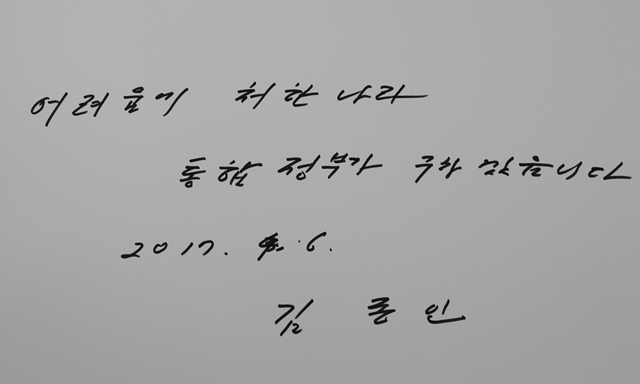 어려움에 처한 나라
통합 정부가 구하겠읍니다
2017. 4. 6.
김 종 인